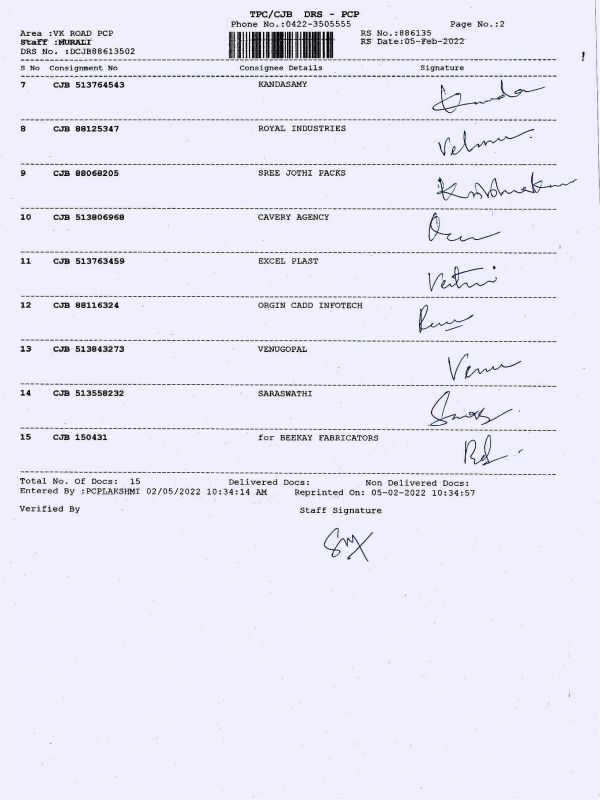 TPC/CJB DRS - PCP
Phone No.:0422-3505555 Page No.:2
Area :VK ROAD PCP RS No.:886135
Staff :MURALI RS Date:05-Feb-2022
DRS No. :DCJB88613502
S No Consignment No Consignee Details Signature
7 CJB 513764543 KANDASAMY
8 CJB 88125347 ROYAL INDUSTRIES
9 CJB 88068205 SREE JOTHI PACKS
10 CJB 513806968 CAVERY AGENCY
11 CJB 513763459 EXCEL PLAST
12 CJB 88116324 ORGIN CADD INFOTECH
13 CJB 513843273 VENUGOPAL
14 CJB 513558232 SARASWATHI
15 CJB 150431 for BEEKAY FABRICATORS
Total No. Of Docs: 15 Delivered Docs: Non Delivered Docs:
Entered By :PCPLAKSHMI 02/05/2022 10:34:14 AM Reprinted On: 05-02-2022 10:34:57
Verified By Staff Signature